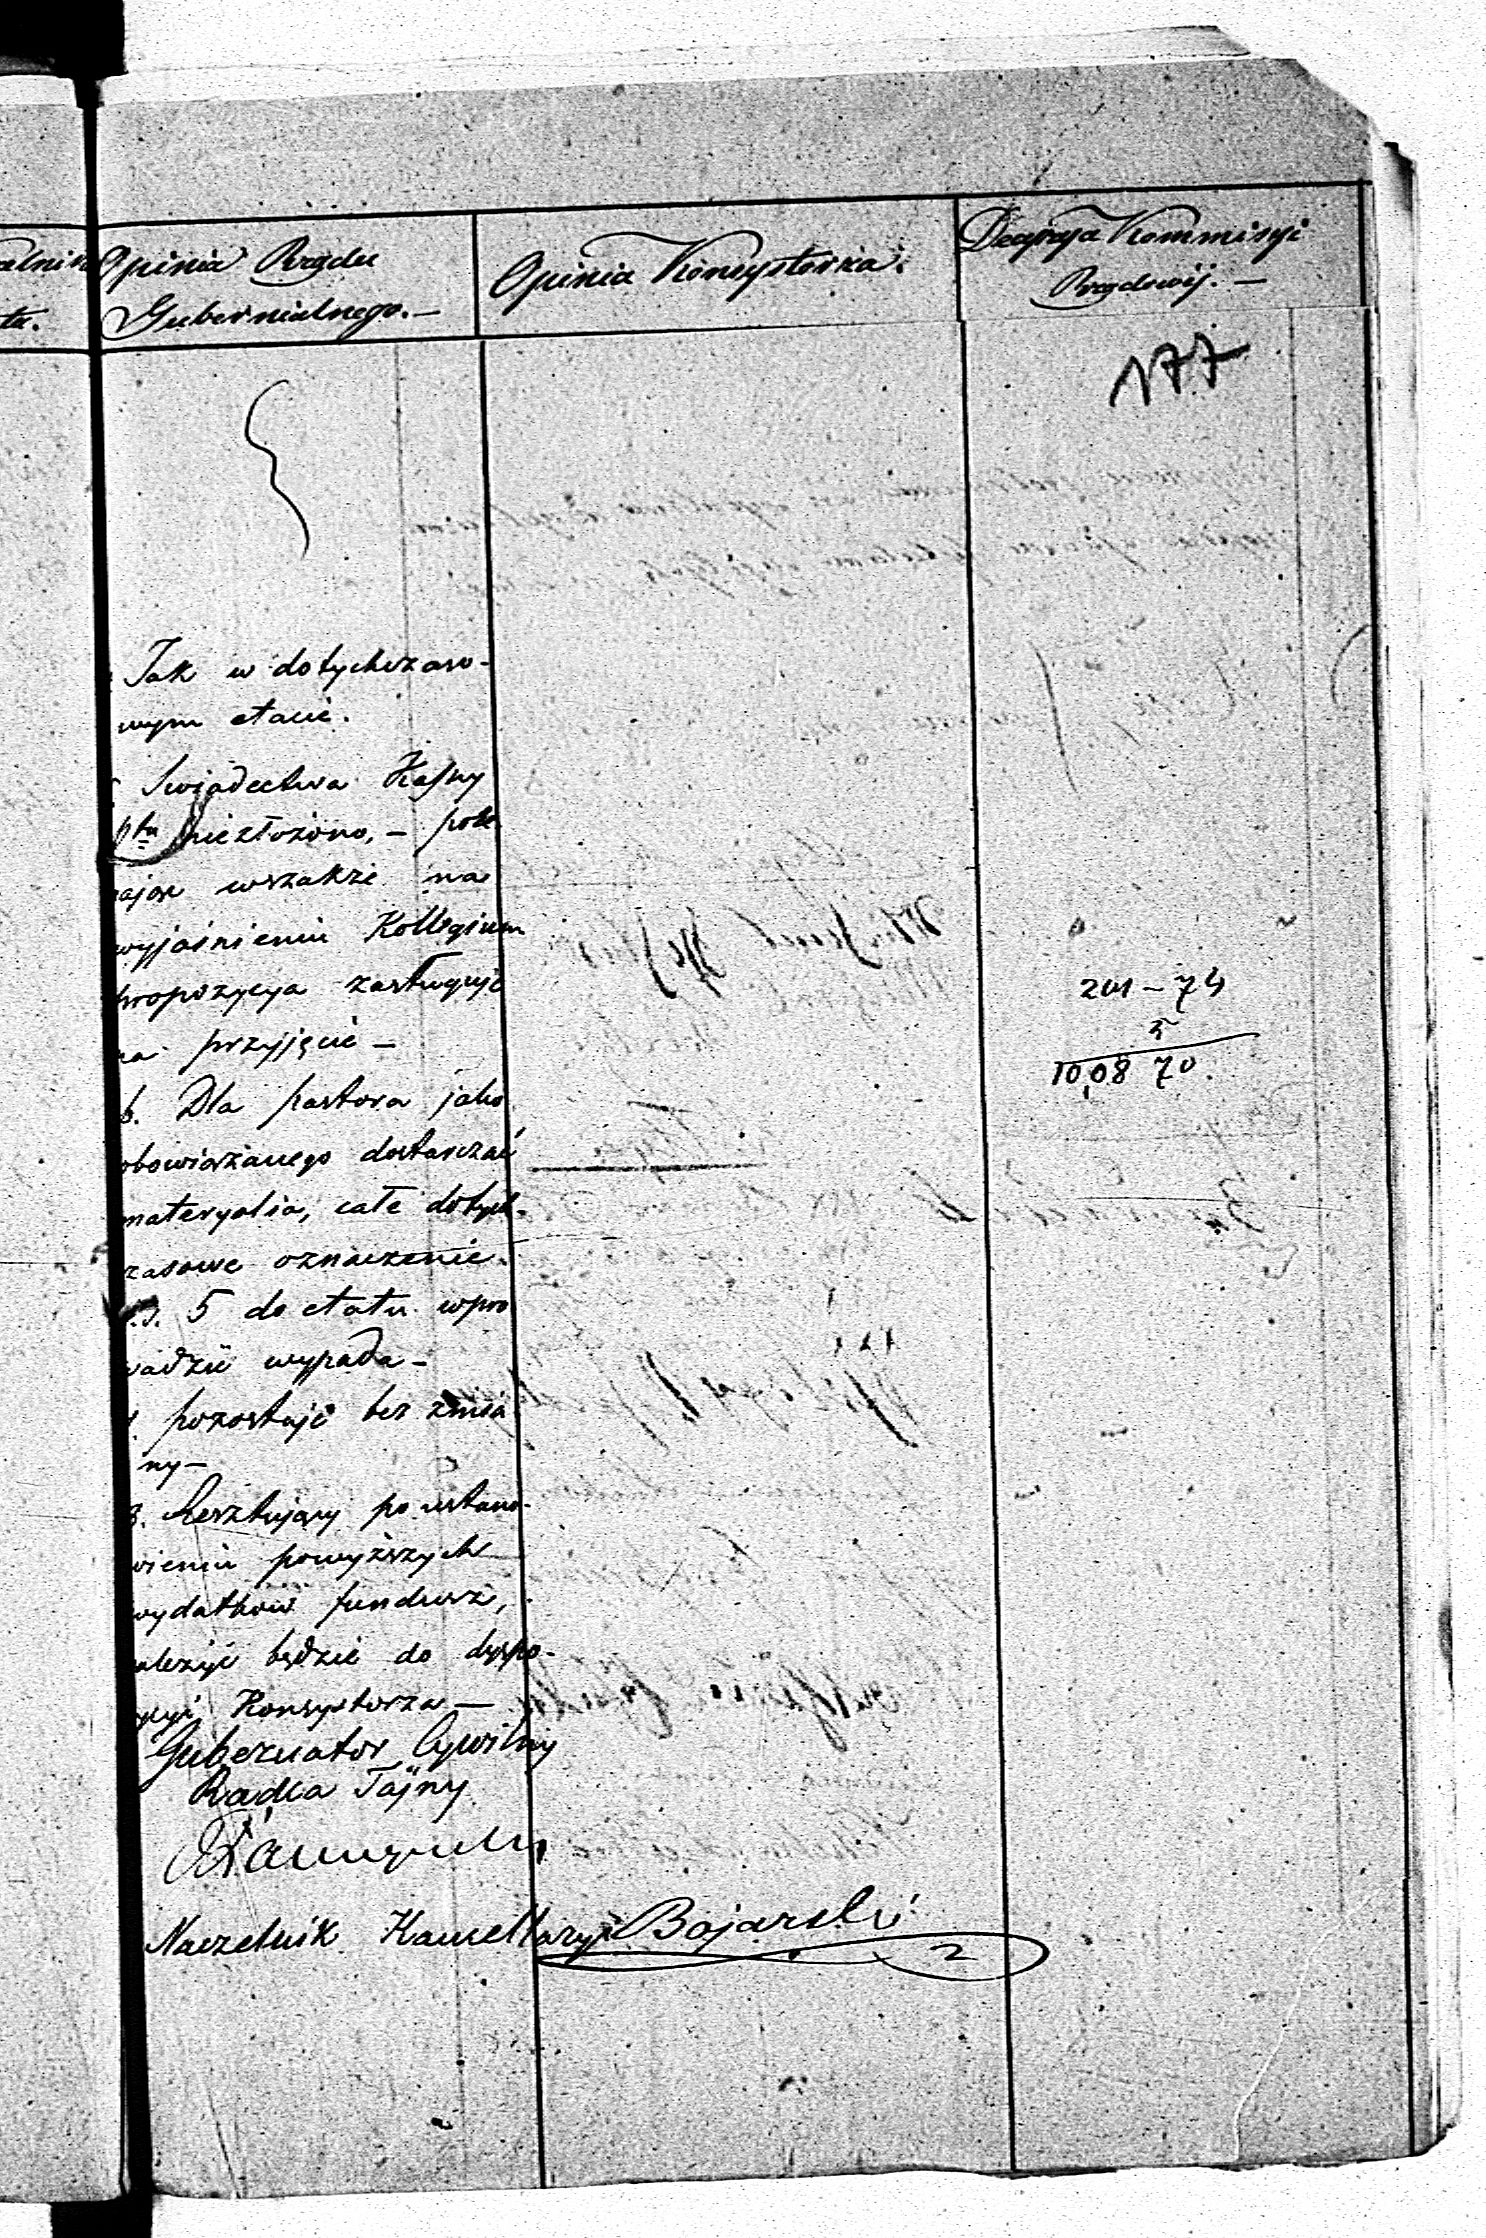 Opinia Rządu
Gubernialnego. —
Opinia Konsystorza.
Decyzya Kommisyi
Rządowéj. —
177
Tak w dotychczaso-
wym etacie.
Swiadectwa Kassy
pktu niezłożono, — pole-
gając wszakże na
wyjaśnieniu Kollegium
propozycya zasługuje
na przyjęcie —
6. Dla pastora jako
obowiązanego dostarczać
materyalia, całe dotych-
czasowe oznaczenie.
5 do etatu wpro
wadzić wypada —
pozostaje bez zmia
ny —
8. Resztujący po ustano-
wieniu powyższych
wydatków fundusz,
należyć będzie do dyspo-
zycyi Konsystorza —
Gubernator Cywilny
Radca Tajny
Naczelnik Kancellaryi Bojarski
201 – 74
5
10,08 70.